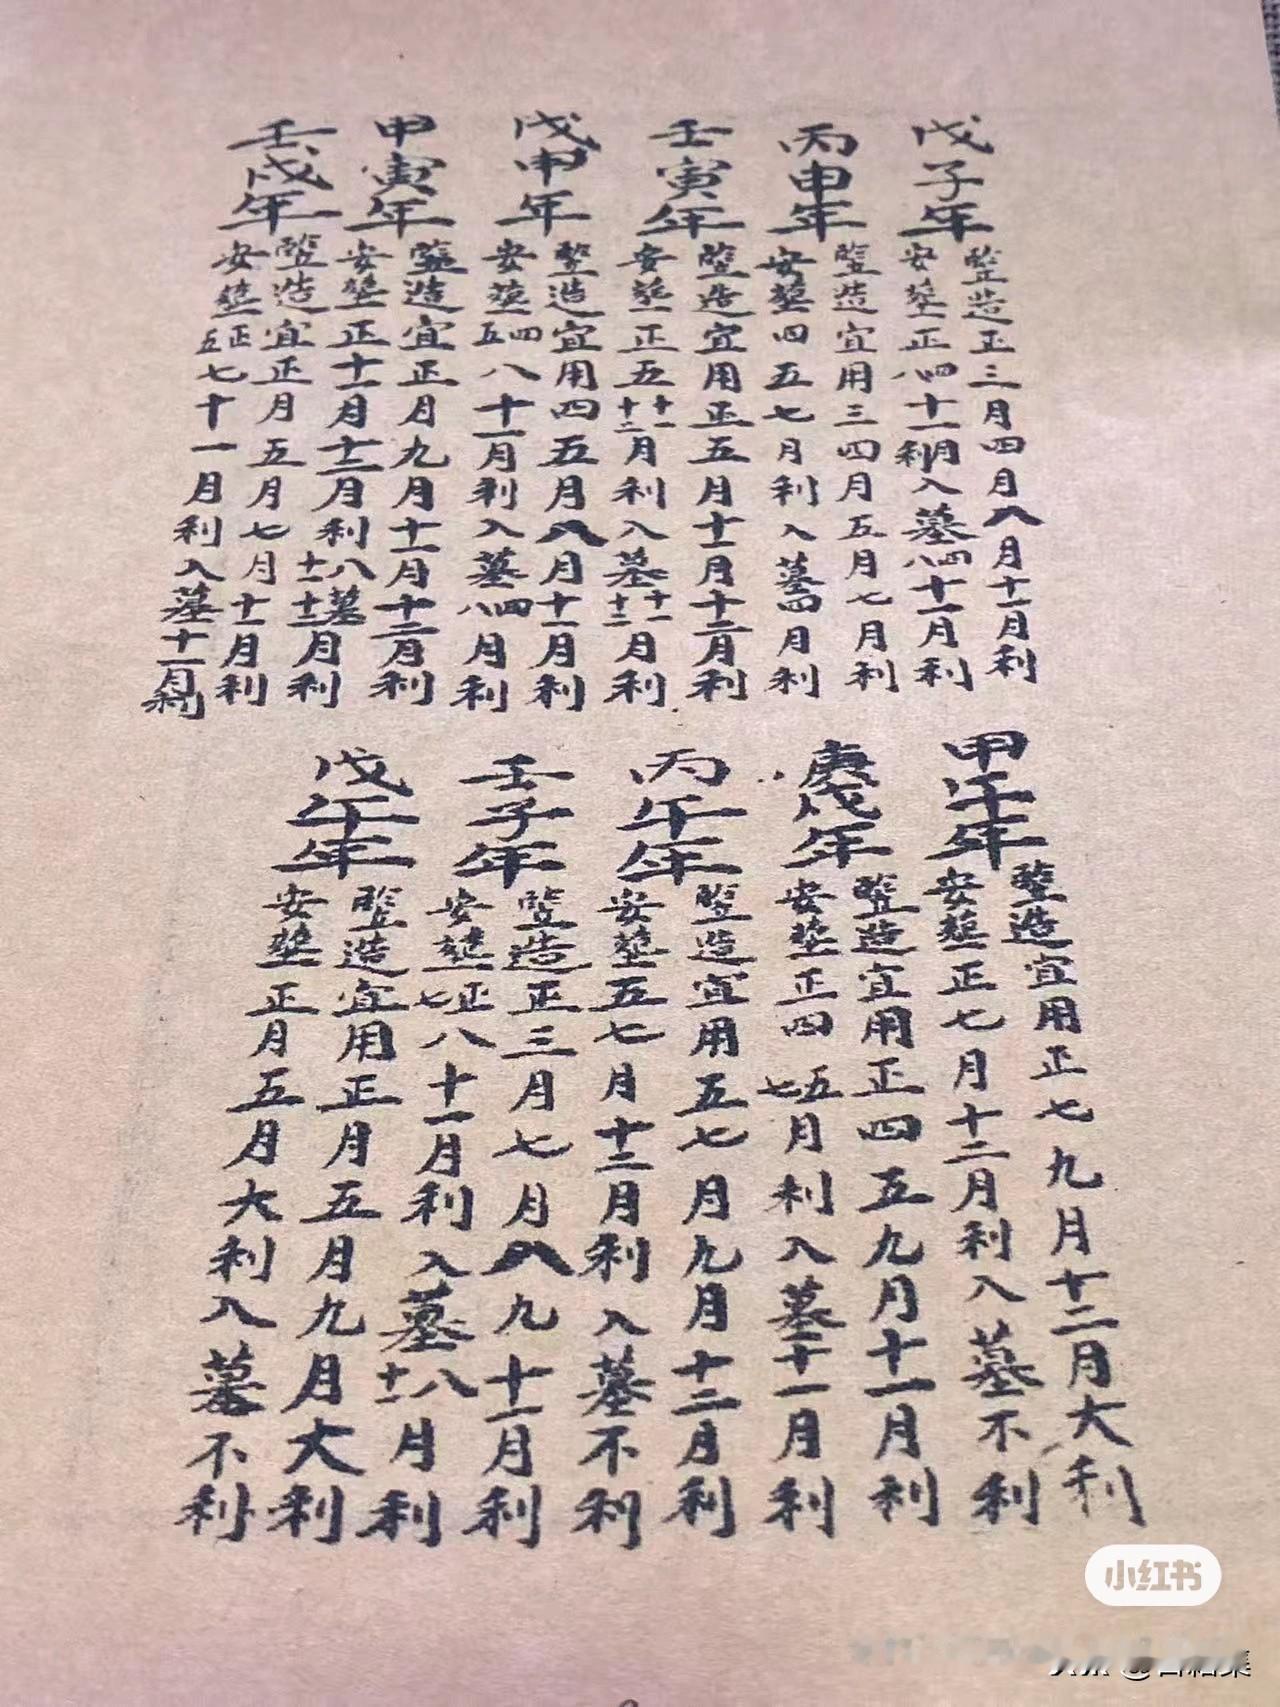 戊子年
豎造正三月四月八月十一月利
安塟正四八十一月利入墓四八十一月利
丙申年
豎造宜用三四月五月七月利
安塟四五七月利入墓四月利
壬寅年
豎造宜用正五月十一月十二月利
安塟正五十一十二月利入墓十一十二月利
戊申年
豎造宜用四五月八月十一月利
安塟四五八十一月利入墓四八月利
甲寅年
豎造宜正月九月十一月十二月利
安塟正十一月十二月利入墓十一十二月利
壬戌年
豎造宜正月五月七月十一月利
安塟正五七十一月利入墓十一月利
甲午年
豎造宜用正七九月十二月大利
安塟正七月十二月利入墓不利
庚戌年
豎造宜用正四五九月十一月利
安塟正四五七月利入墓十一月利
丙午年
豎造宜用五七月九月十二月利
安塟五七月十二月利入墓不利
壬子年
豎造正三月七月八九十一月利
安塟正七八十一月利入墓八十一月利
戊午年
豎造宜用正月五月九月大利
安塟正月五月大利入墓不利
小红书